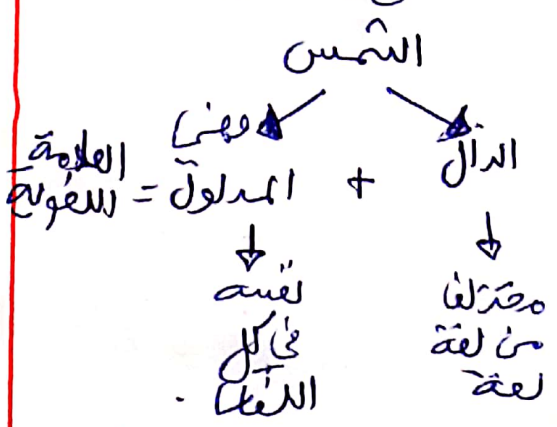 الشمس
معنى
الدال + المدلول = العلامة اللغوية
مختلف
من لغة
لغة
نفسه
في كل
اللغات .